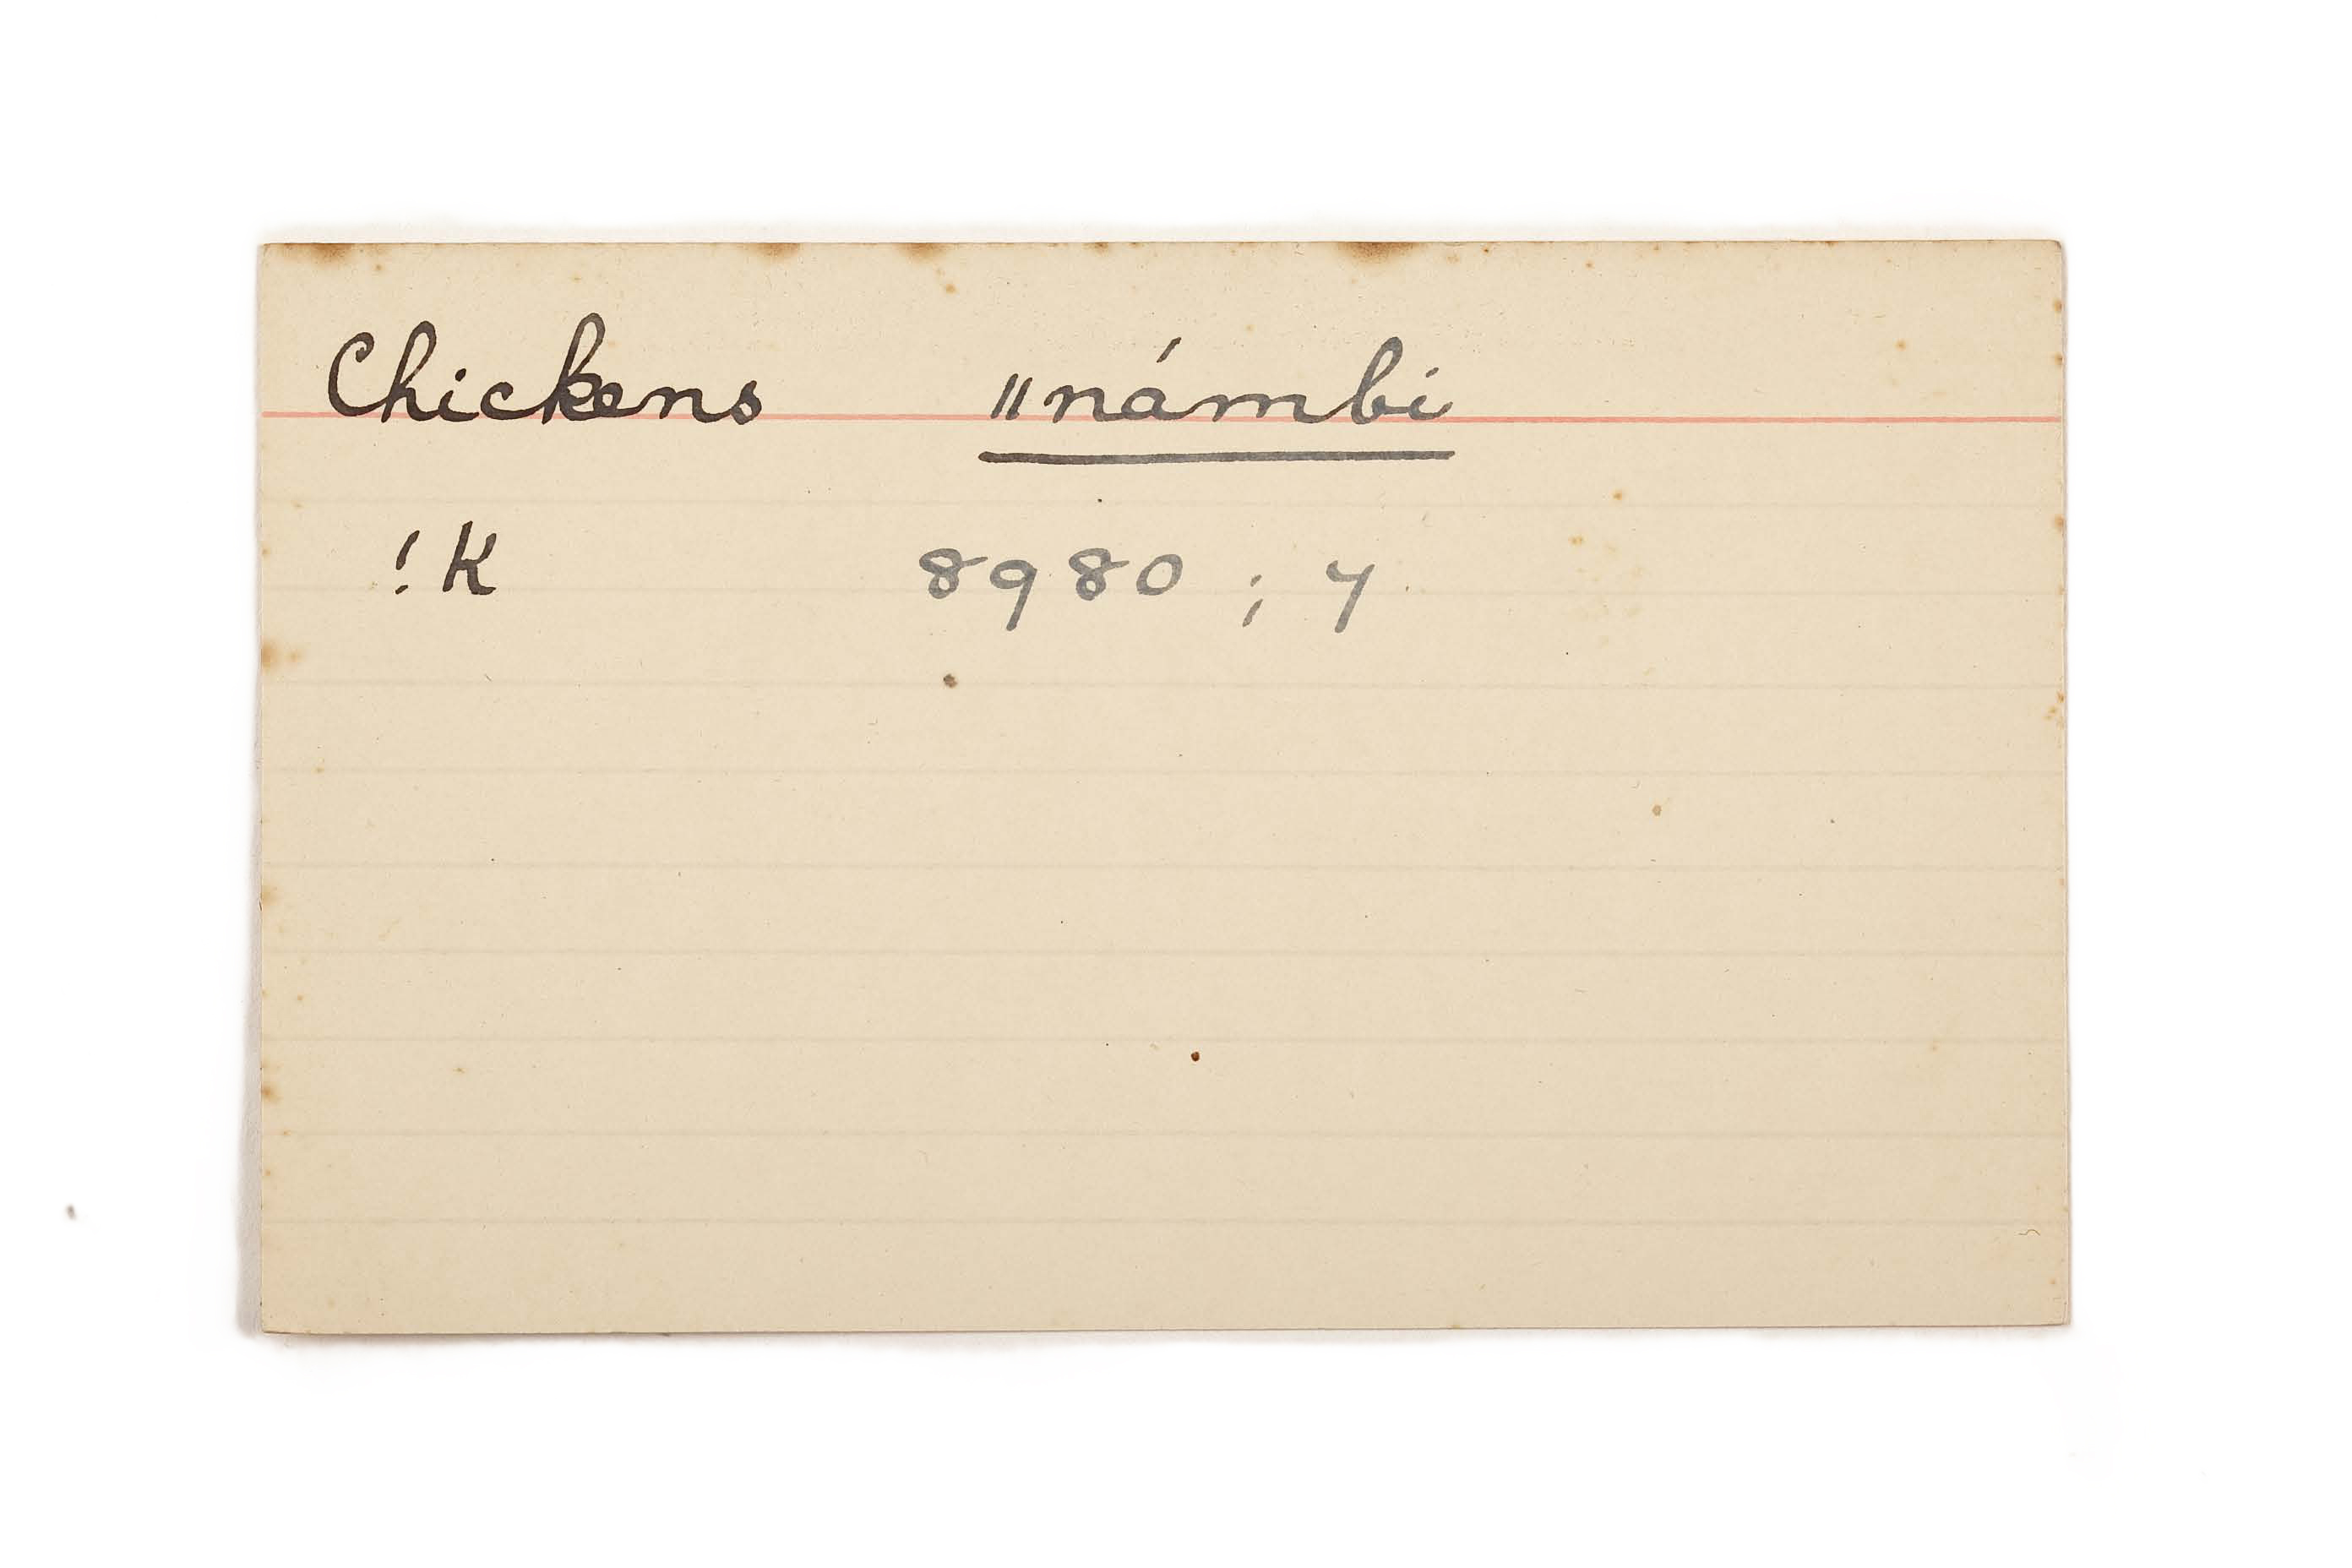 Chickens ǁnámbi
!K 8980 ; 7